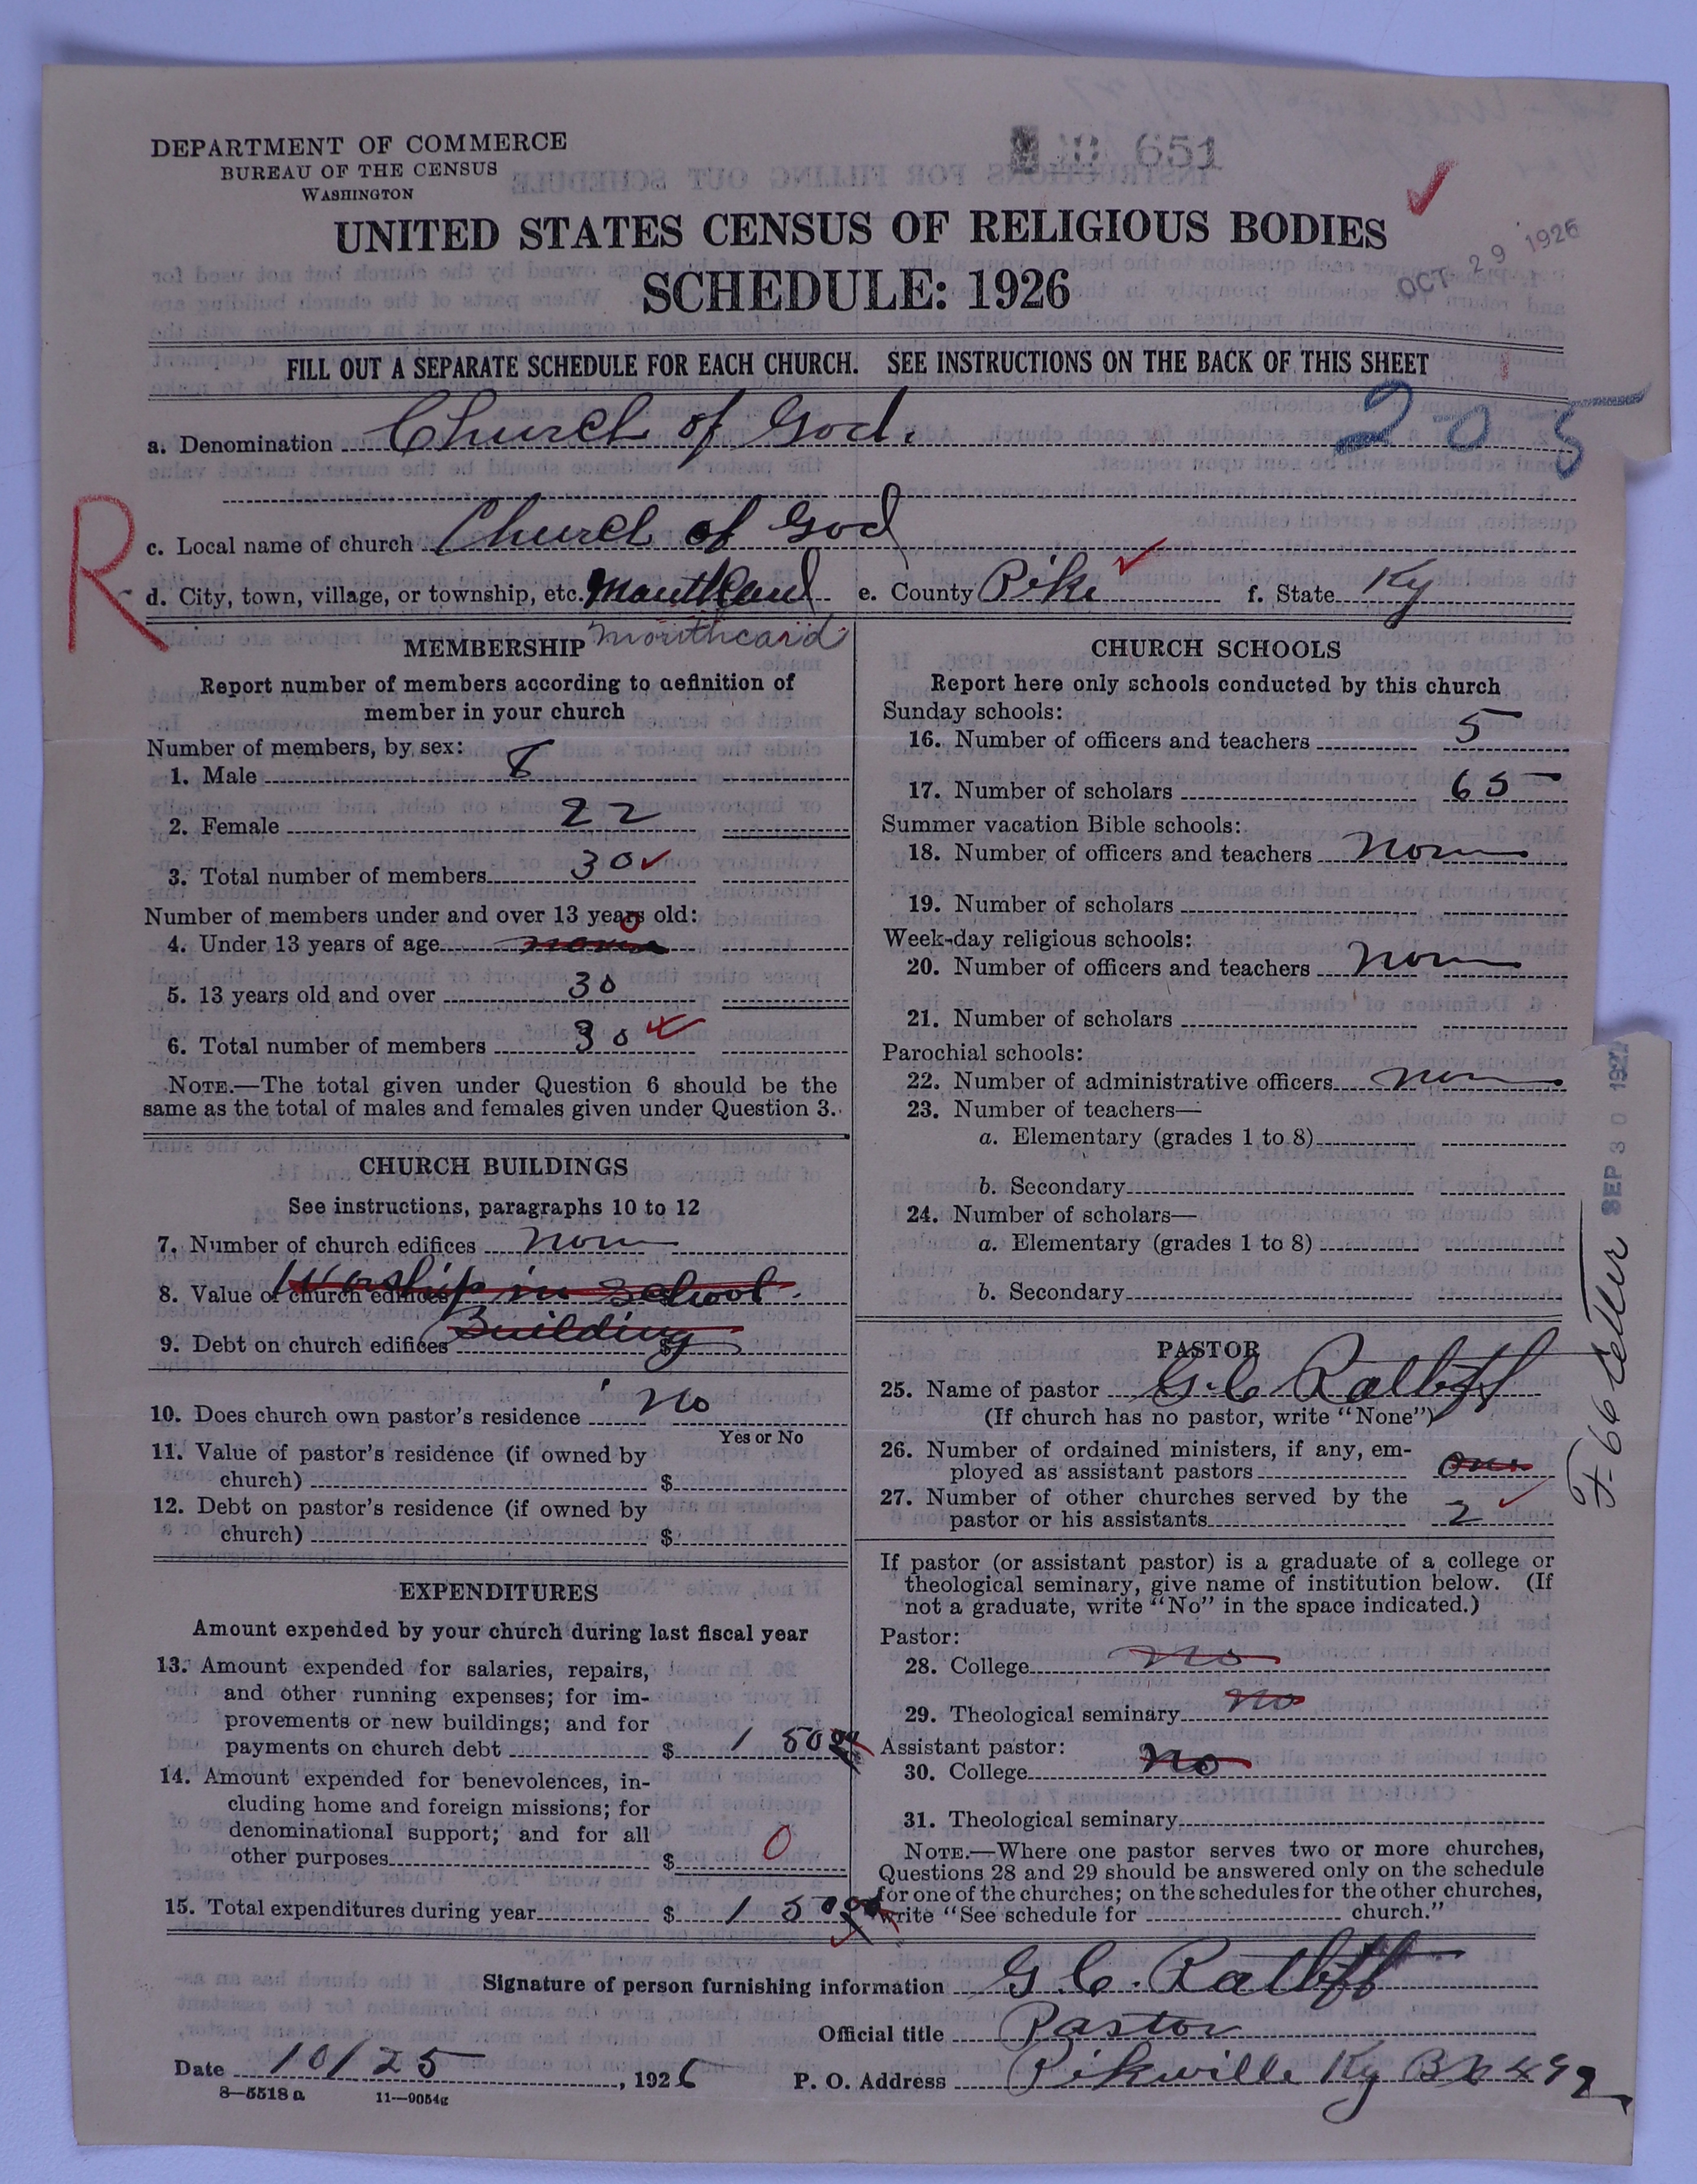 DEPARTMENT OF COMMERCE
BUREAU OF THE CENSUS
WASHINGTON
651
UNITED STATES CENSUS OF RELIGIOUS BODIES
SCHEDULE: 1926
OCT 29 1926
FILL OUT A SEPARATE SCHEDULE FOR EACH CHURCH. SEE INSTRUCTIONS ON THE BACK OF THIS SHEET
a. Denomination Church of God. 205
R
c. Local name of church Church of God
d. City, town, village, or township, etc. e. County Pike f. State Ky
Mouthcard
MEMBERSHIP
Report number of members according to definition of
member in your church
Number of members, by sex:
1. Male 8
2. Female 22
3. Total number of members 30
Number of members under and over 13 years old:
4. Under 13 years of age none 0
5. 13 years old and over 30
6. Total number of members 30
NOTE.—The total given under Question 6 should be the
same as the total of males and females given under Question 3.
CHURCH BUILDINGS
See instructions, paragraphs 10 to 12
7. Number of church edifices none
8. Value of church edifices Worship in School
9. Debt on church edifices Building $
10. Does church own pastor's residence No
Yes or No
11. Value of pastor's residence (if owned by
church) $
12. Debt on pastor's residence (if owned by
church) $
EXPENDITURES
Amount expended by your church during last fiscal year
13. Amount expended for salaries, repairs,
and other running expenses; for im-
provements or new buildings; and for
payments on church debt $ 150
14. Amount expended for benevolences, in-
cluding home and foreign missions; for
denominational support; and for all
other purposes $ 0
15. Total expenditures during year $ 150
CHURCH SCHOOLS
Report here only schools conducted by this church
Sunday schools:
16. Number of officers and teachers 5
17. Number of scholars 65
Summer vacation Bible schools:
18. Number of officers and teachers none
19. Number of scholars
Week-day religious schools:
20. Number of officers and teachers none
21. Number of scholars
Parochial schools:
22. Number of administrative officers none
23. Number of teachers—
a. Elementary (grades 1 to 8)
b. Secondary
24. Number of scholars—
a. Elementary (grades 1 to 8)
b. Secondary
PASTOR
25. Name of pastor G. C. Ratliff
(If church has no pastor, write "None")
26. Number of ordained ministers, if any, em-
ployed as assistant pastors one
27. Number of other churches served by the
pastor or his assistants 2
If pastor (or assistant pastor) is a graduate of a college or
theological seminary, give name of institution below. (If
not a graduate, write "No" in the space indicated.)
Pastor:
28. College no
29. Theological seminary no
Assistant pastor:
30. College no
31. Theological seminary
NOTE.—Where one pastor serves two or more churches,
Questions 28 and 29 should be answered only on the schedule
for one of the churches; on the schedules for the other churches,
write "See schedule for church."
F-66 letter SEP 30 1927
Signature of person furnishing information G. C. Ratliff
Official title Pastor
Date 10/25, 1926 P. O. Address Pikville Ky
8—5518 a 11—9054g